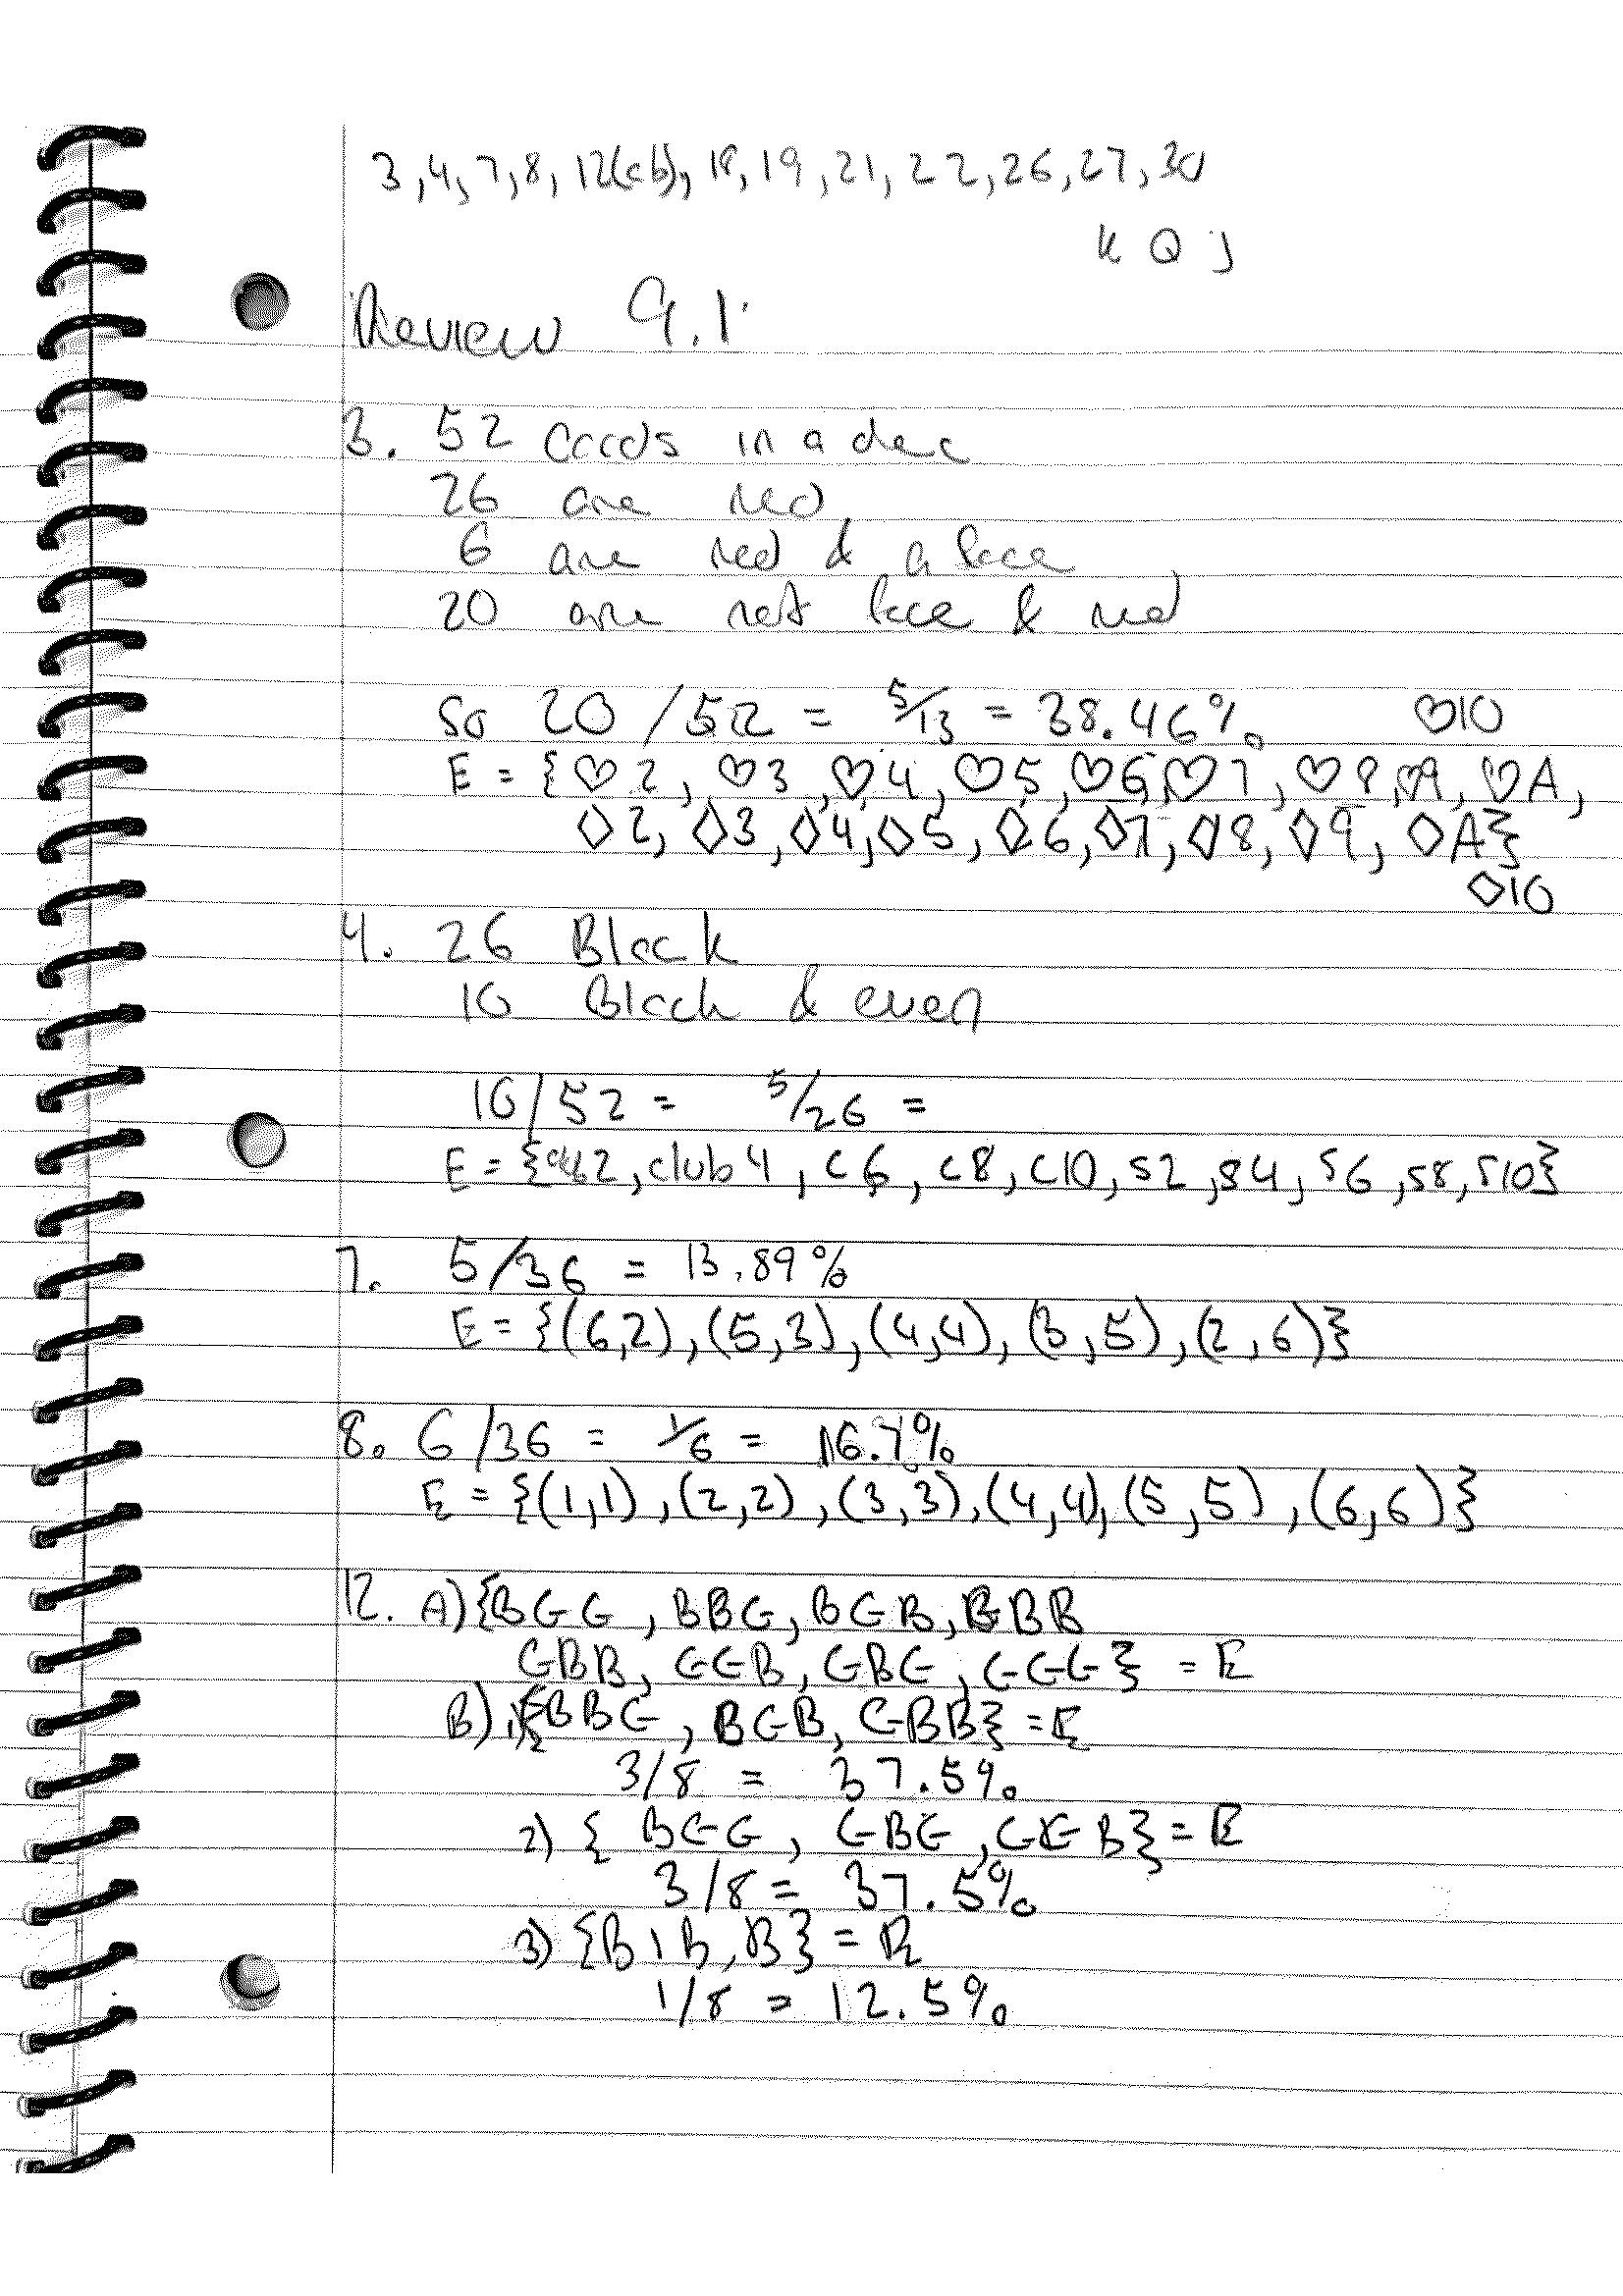 3, 4, 7, 8, 12(ab), 18, 19, 21, 22, 26, 27, 30
K Q J
Review 9.1
3. 52 cards in a dec
26 are red
6 are red & a face
20 are not face & red
So 20/52 = 5/13 = 38.46% ♡10
E = {♡2, ♡3, ♡4, ♡5, ♡6, ♡7, ♡8, ♡9, ♡A,
◇2, ◇3, ◇4, ◇5, ◇6, ◇7, ◇8, ◇9, ◇A}
◇10
4. 26 Black
10 Black & even
10/52 = 5/26 =
E = {club 2, club 4, C6, C8, C10, S2, S4, S6, S8, S10}
7. 5/36 = 13.89%
E = {(6,2), (5,3), (4,4), (3,5), (2,6)}
8. 6/36 = 1/6 = 16.7%
E = {(1,1), (2,2), (3,3), (4,4), (5,5), (6,6)}
12. A) {BGG, BBG, BGB, BBB
GBB, GGB, GBG, GGG} = E
B) 1) {BBG, BGB, GBB} = E
3/8 = 37.5%
2) {BGG, GBG, GGB} = E
3/8 = 37.5%
3) {B, B, B} = E
1/8 = 12.5%